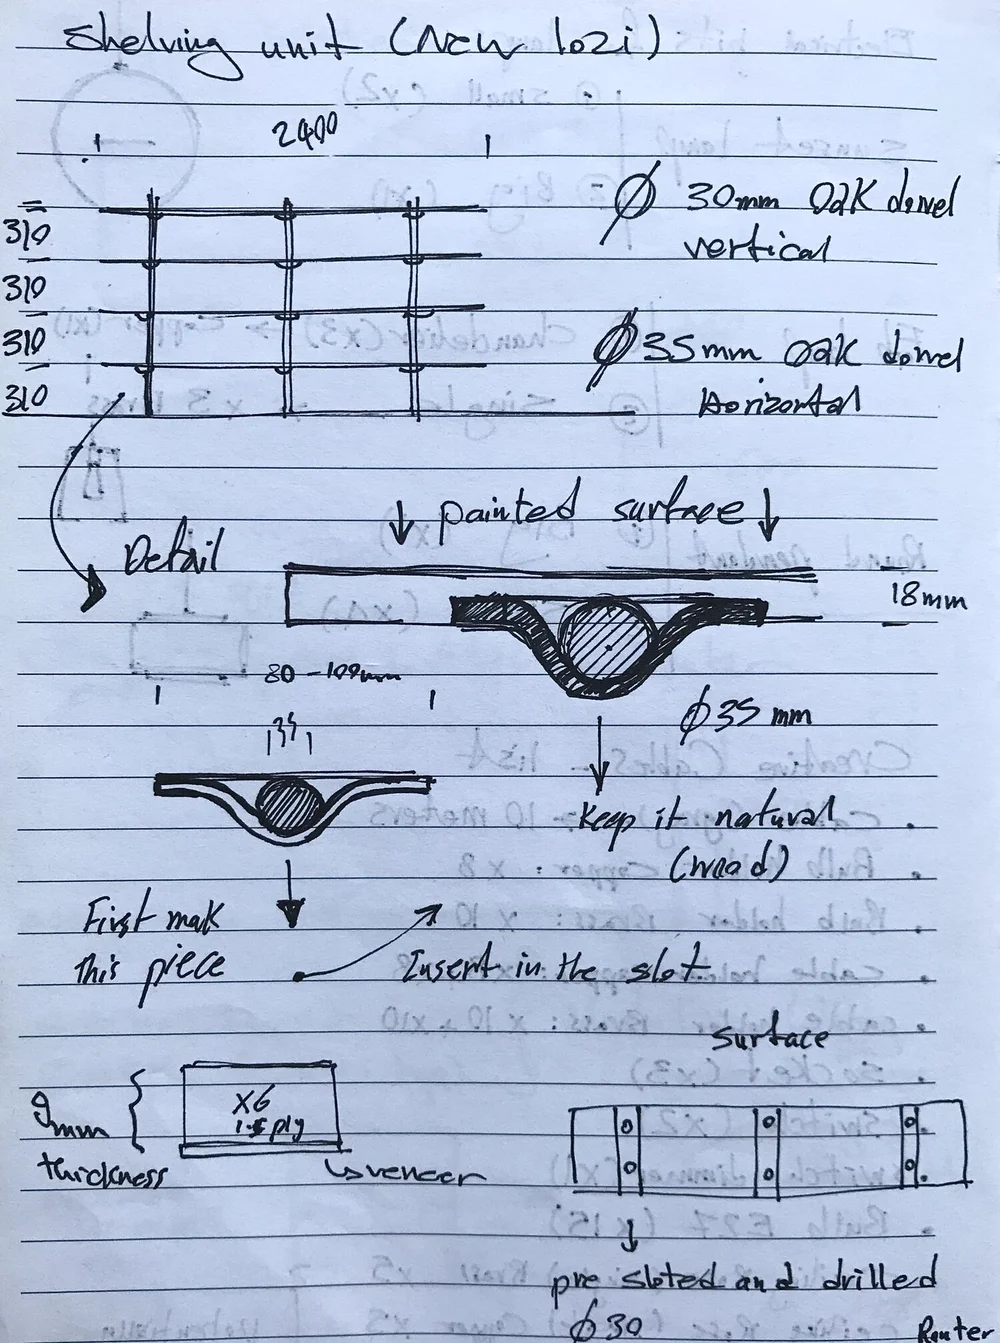 Shelving unit (New lozi)
2400
310
310
310
310
Ø 30mm Oak dowel
vertical
Ø 35mm Oak dowel
Horizontal
painted surface
Detail
18mm
80 - 100mm
35
Ø 35 mm
Keep it natural
(wood)
First mak
this piece
Insert in the slot
surface
9mm
thickness
x6
1.5 ply
veneer
pre sloted and drilled
Ø 30
Router